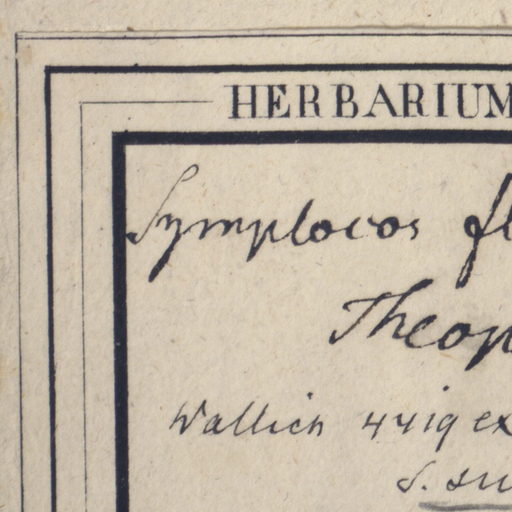 HERBARIUM
Symplocos fl
Theop
Wallich 4419 ex
S. su